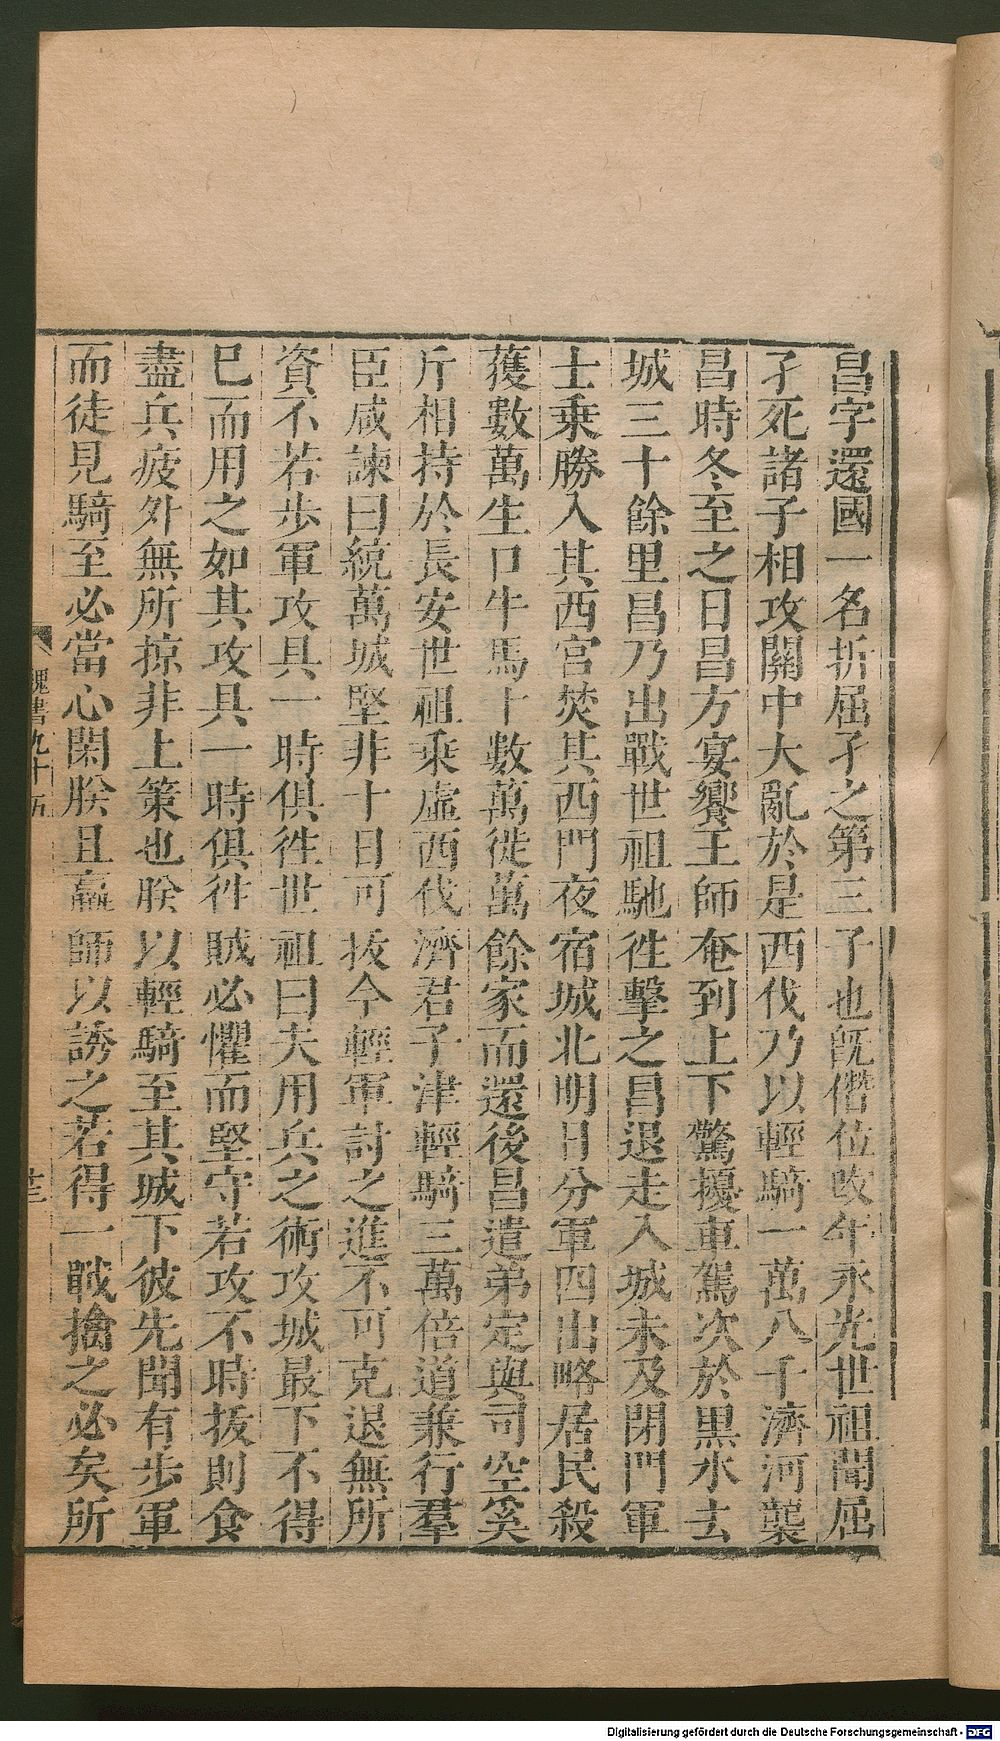 昌字還國一名折屈孑之第三子也旣僭位改年永光世祖聞屈
孑死諸子相攻關中大亂於是西伐乃以輕騎一萬八千濟河襲
昌時冬至之日昌方宴饗王師奄到上下驚擾車駕次於黑水去
城三十餘里昌乃出戰世祖馳徃擊之昌退走入城未及閉門軍
士乗勝入其西宮焚其西門夜宿城北明日分軍四出略居民殺
獲數萬生口牛馬十數萬徙萬餘家而還後昌遣弟定與司空奚
斤相持於長安世祖乘虛西伐濟君子津輕騎三萬倍道兼行羣
臣咸諫曰統萬城堅非十日可拔今輕軍討之進不可克退無所
資不若步軍攻具一時俱徃世祖曰夫用兵之術攻城最下不得
已而用之如其攻具一時俱徃賊必懼而堅守若攻不時拔則食
盡兵疲外無所掠非上策也朕以輕騎至其城下彼先聞有步軍
而徒見騎至必當心閑朕且羸師以誘之若得一戰擒之必矣所
魏書九十五
Digitalisierung gefördert durch die Deutsche Forschungsgemeinschaft - DFG